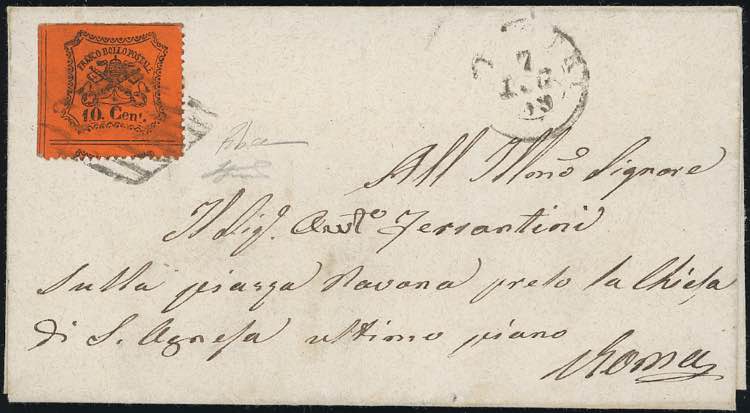 FRANCO BOLLO POSTALE
10. Cent.
7
LUG
69
All Illmo Signore
Il Sig. Antº Ferrantini
Sulla piazza Navona preso la Chiesa
di S. Agnesa ultimo piano
Roma